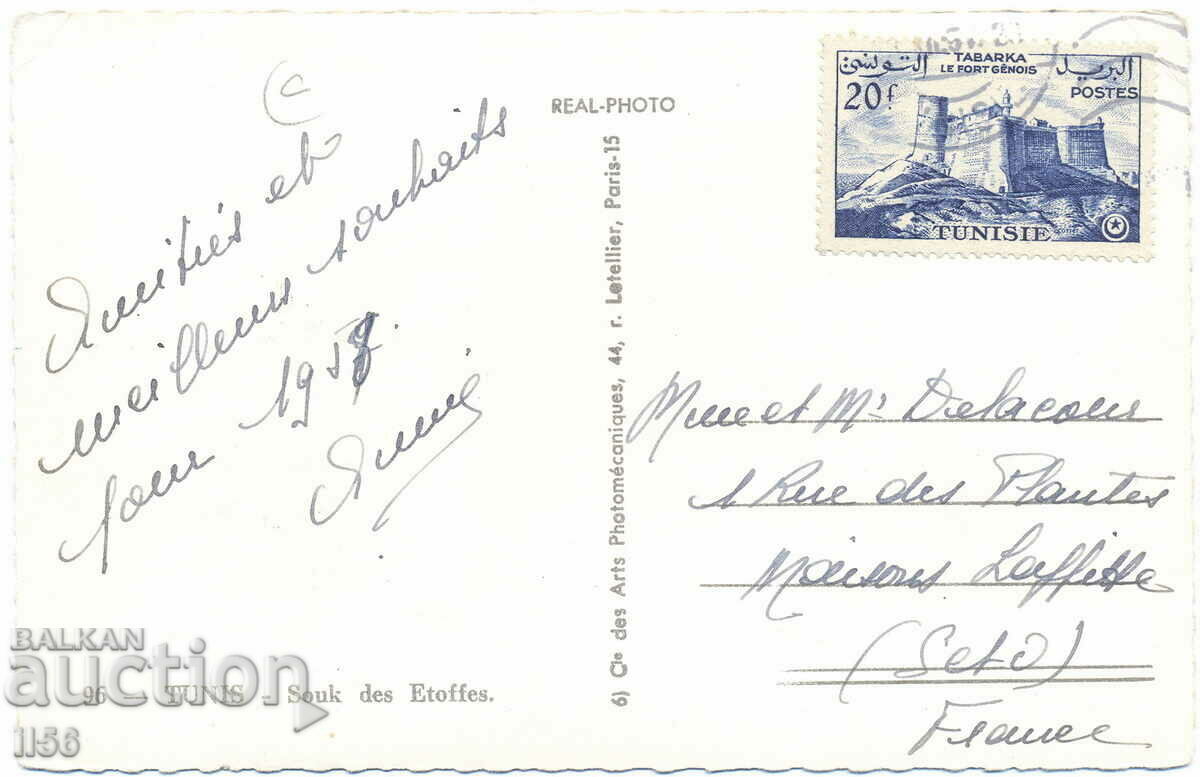 Amitiés et
meilleurs souhaits
pour 1957.
Annie
REAL-PHOTO
6) Cie des Arts Photomécaniques, 44, r. Letellier, Paris-15
96 - TUNIS - Souk des Etoffes.
البريد التونسي
TABARKA
LE FORT GÊNOIS
20f
POSTES
TUNISIE
Mme et Mr Delacour
1 Rue des Plantes
Maisons Laffitte
(S et O)
France
BALKAN
auction
1156